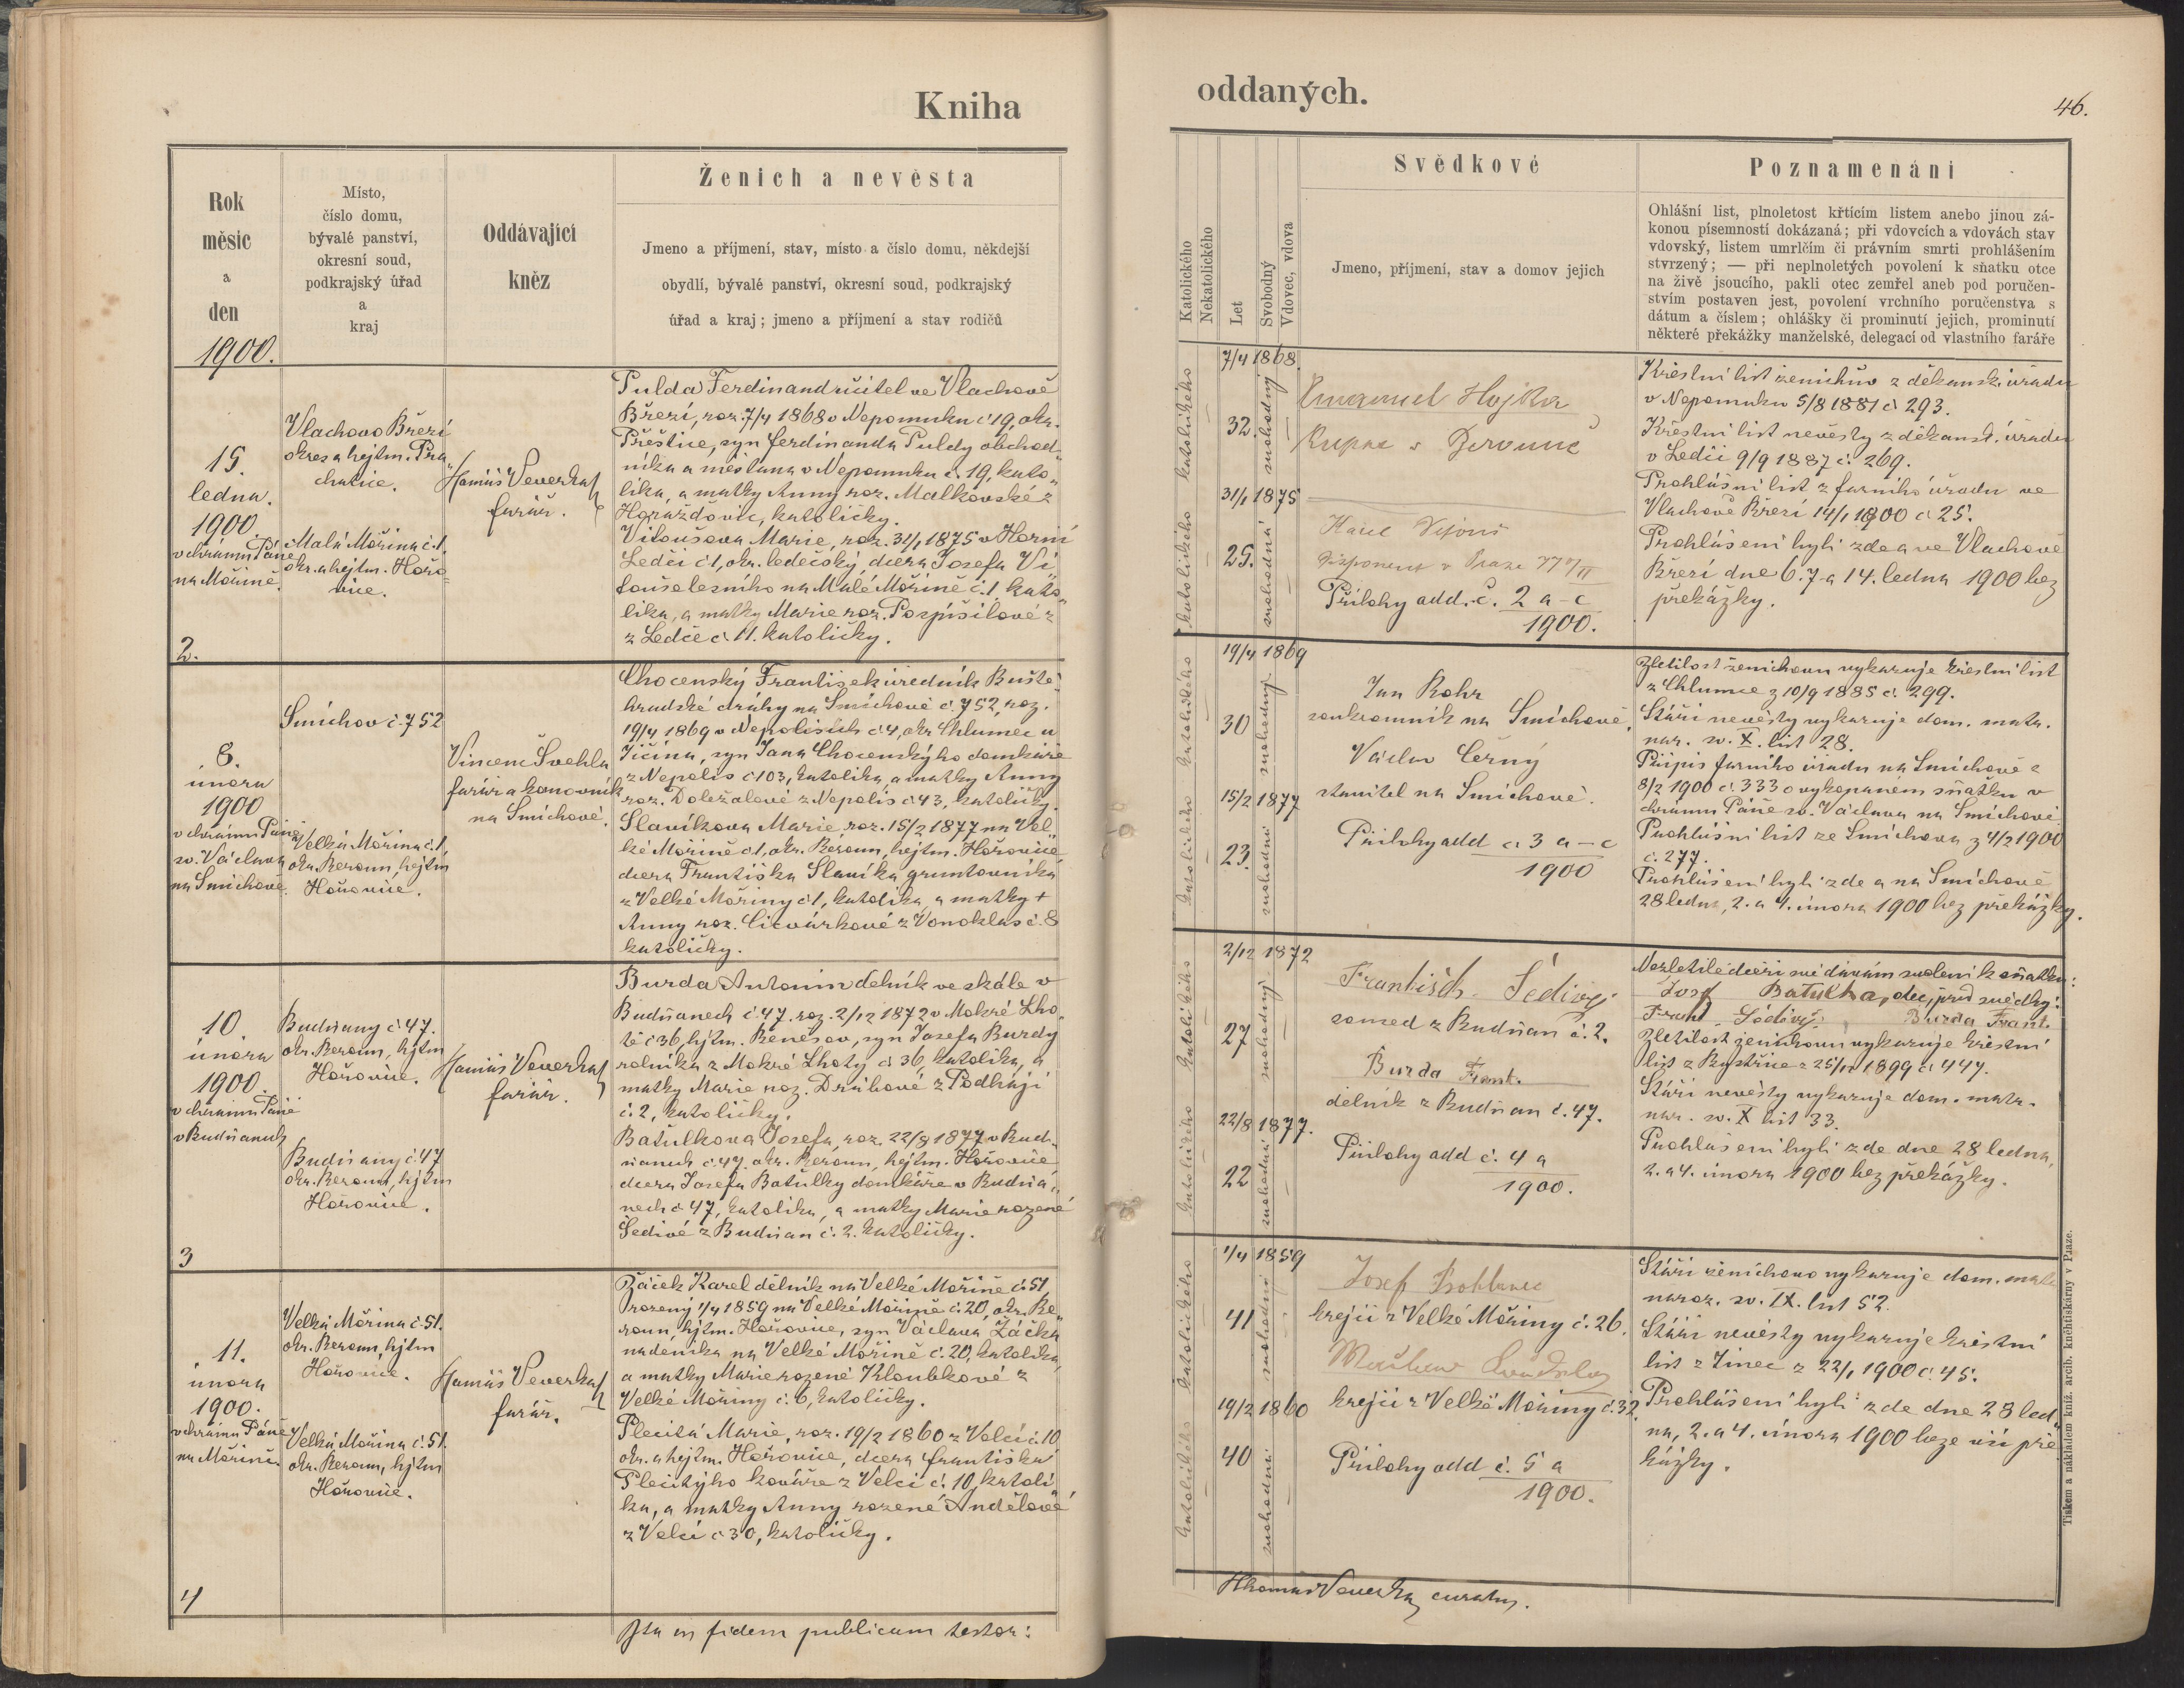 Kniha
oddaných.
46.
Rok
měsíc
a
den
1900.
Místo,
číslo domu,
bývalé panství,
okresní soud,
podkrajský úřad
a
kraj
Oddávající
kněz
Ženich a nevěsta
Jmeno a příjmení, stav, místo a číslo domu, někdejší
obydlí, bývalé panství, okresní soud, podkrajský
úřad a kraj; jmeno a příjmení a stav rodičů
Katolického
Nekatolického
Let
Svobodný
Vdovec, vdova
Svědkové
Jmeno, příjmení, stav a domov jejich
Poznamenání
Ohlášní list, plnoletost křtícím listem anebo jinou zá-
konou písemností dokázaná; při vdovcích a vdovách stav
vdovský, listem umrlčím či právním smrti prohlášením
stvrzený; — při neplnoletých povolení k sňatku otce
na živě jsoucího, pakli otec zemřel aneb pod poručen-
stvím postaven jest, povolení vrchního poručenstva s
dátum a číslem; ohlášky či prominutí jejich, prominutí
některé překážky manželské, delegací od vlastního faráře
15.
ledna
1900.
v chrámu Páně
na Mořině.
2.
Vlachovo Březí
okres a hejtm. Pra„
chatice.
Malá Mořina č. 1.
okr. a hejtm. Hořo„
vice.
Hamiáš Veverka
farář.
Pulda Ferdinand učitel ve Vlachově
Březí, roz. 7/4 1868 v Nepomuku č 19, okr.
Přeštice, syn Ferdinanda Puldy obchod„
níka a měšťana v Nepomuku č. 19, kato„
líka, a matky Anny roz. Malkovské z
Horažďovic, katoličky.
Vitoušova Marie, roz. 31/1 1875 v Horní
Ledči č 1, okr. ledečský, dcera Josefa Vi
touše lesního na Malé Mořině č. 1, kato„
líka, a matky Marie roz. Pospíšilové z
z Ledče č 11. katoličky.
katolického
katolického
7/4 1868
32.
31/1 1875
25.
svobodný
svobodná
Emanuel Hojka
Karel
v Praze
Přílohy add. č. 2 a–c
1900.
Křestní list ženichův z děkansk. úřadu
v Nepomuku 5/8 1881 č 293.
Křestní list nevěsty z děkansk. úřadu
v Ledči 9/9 1887 č. 269.
Prohlášní list z farního úřadu ve
Vlachově Březí 14/1 1900 č 25.
Prohlášeni byli zde a ve Vlachově
Březí dne 6. 7. a 14. ledna 1900 bez
překážky.
8.
února
1900
v chrámu Páně
sv. Václava
na Smíchově.
Smíchov č. 752
Velká Mořina č. 1,
okr. Beroun, hejtm
Hořovice.
Vincenc Švehla
farář a kanovník
na Smíchově.
Chocenský František úředník Buště„
hradské dráhy na Smíchově č. 752, roz.
19/4 1869 v Nepolisích č 4, okr Chlumec u
Jičína, syn Jana Chocenskýho domkáře
z Nepolis č 103, katolíka a matky Anny
roz. Doležalové z Nepolis č 43, katoličky.
Slavíkova Marie, roz. 15/2 1877 na Vel„
ké Mořině č 1, okr. Beroun, hejtm. Hořovice
dcera Františka Slavíka gruntovníka
z Velké Mořiny č 1, katolíka, a matky †
Anny roz. Civárkové z Vonoklas č. 8
katoličky.
katolického
katolického
19/4 1869
30
15/2 1877
23.
svobodný
svobodná
Jan Rohr
soukromník na Smíchově.
Václav Černý
stavitel na Smíchově.
Přílohy add č. 3 a–c
1900
Zletilost ženichovu vykazuje křestní list
z Chlumce z 10/9 1885 č. 299.
Stáří nevěsty vykazuje dom. matr.
nar. sv. X. list 28.
Přípis farního úřadu na Smíchově z
8/2 1900 č. 333 o vykonaném sňatku v
chrámu Páně sv. Václava na Smíchově
Prohlášní list ze Smíchova z 4/2 1900
č. 277.
Prohlášeni byli zde a na Smíchově
28 ledna, 2. a 4. února 1900 bez překážky.
10.
února
1900.
v chrámu Páně
v Budňanech
3
Budňany č. 47.
okr. Beroun, hjtm
Hořovice.
Budňany č. 47
okr. Beroun, hjtm
Hořovice.
Hamiáš Veverka
farář.
Burda Antonín dělník ve skále v
Budňanech č. 47. roz. 2/12 1872 v Mokré Lho„
tě č 36, hjtm. Benešov, syn Josefa Burdy
rolníka z Mokré Lhoty č 36, katolíka, a
matky Marie roz. Drábové z Podhájí
č. 2, katoličky.
Baťulkova Josefa, roz. 22/8 1877 v Bud„
ňanech č. 47. okr. Beroun, hejtm. Hořovice
dcera Josefa Baťulky domkáře v Budňa„
nech č 47, katolíka, a matky Marie rozené
Šedivé z Budňan č. 2. katoličky.
katolického
katolického
2/12 1872
27
22/8 1877.
22
svobodný
svobodná
František Šedivý
soused z Budňan č. 2.
Burda Frant.
dělník z Budňan č. 47.
Přílohy add č. 4 a
1900.
Nezletilé dceři své dávám svolení k sňatku:
Josef Batulka, otec, před svědky:
Frant. Šedivý Burda Frant.
Zletilost ženichovu vykazuje křestní
list z Bystřice z 25/11 1899 č 447.
Stáří nevěsty vykazuje dom. matr.
nar. sv. X list 33.
Prohlášeni byli zde dne 28 ledna,
2. a 4. února 1900 bez překážky.
11.
února
1900.
v chrámu Páně
na Mořině.
4
Velká Mořina č. 51.
okr. Beroun, hjtm
Hořovice.
Velká Mořina č. 51.
okr. Beroun, hjtm
Hořovice.
Hamiáš Veverka
farář.
Žáček Karel dělník na Velké Mořině č. 51,
rozený 1/4 1859 na Velké Mořině č. 20, okr. Be„
roun, hjtm. Hořovice, syn Václava Žáčka
nádeníka na Velké Mořině č. 20, katolíka,
a matky Marie rozené Kloubkové z
Velké Mořiny č. 6, katoličky.
Plecitá Marie, roz. 19/2 1860 z Velcí č. 10
okr. a hejtm. Hořovice, dcera Františka
Plecitýho kováře z Velcí č. 10, katolí„
ka, a matky Anny rozené Andělové
z Velcí č 30, katoličky.
katolického
katolického
1/4 1859
41
19/2 1860
40
svobodný
svobodná
Josef
krejčí z Velké Mořiny č. 26.
krejčí z Velké Mořiny č. 32.
Přílohy add č. 5 a
1900.
Stáří ženichovo vykazuje dom. matr
naroz. sv. IX. list 52.
Stáří nevěsty vykazuje křestní
list z Jinec z 22/1 1900 č. 45.
Prohlášeni byli zde dne 28 led„
na, 2. a 4. února 1900 beze vší pře
kážky.
Ita in fidem publicam testor:
Veverka, curatus.
Tiskem a nákladem kníž. arcib. knihtiskárny v Praze.